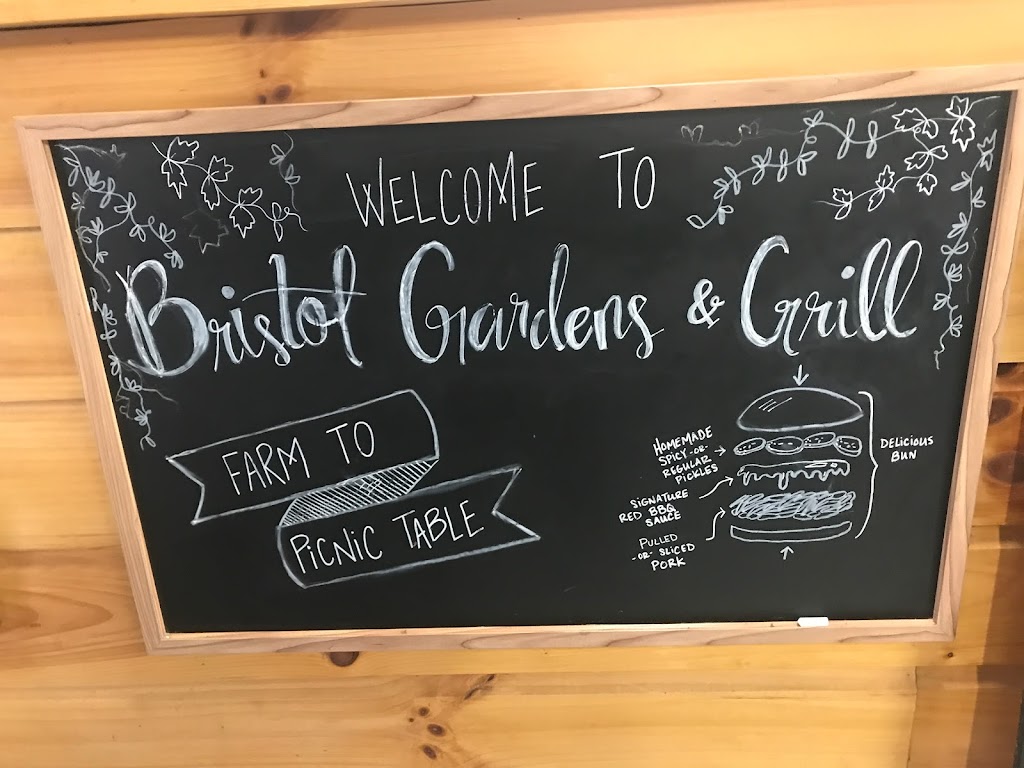 WELCOME TO
Bristol Gardens & Grill
FARM TO
PICNIC TABLE
HOMEMADE
SPICY -OR-
REGULAR
PICKLES
SIGNATURE
RED BBQ
SAUCE
PULLED
-OR- SLICED
PORK
DELICIOUS
BUN